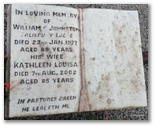 IN LOVING MEMORY
OF
WILLIAM JOHNSTON
DIED 23RD JAN 1977
AGED 69 YEARS
HIS WIFE
KATHLEEN LOUISA
DIED 7TH AUG. 2002
AGED 85 YEARS
IN PASTURES GREEN
HE LEADETH ME